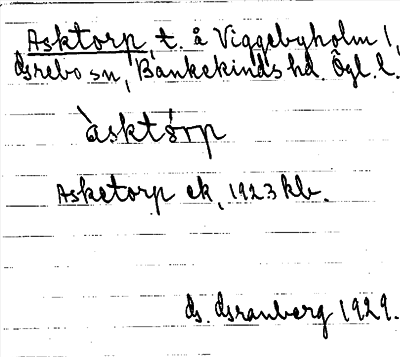 Asktorp, t. å Viggebyholm 1,
Grebo sn, Bankekinds hd. Ögl. l.
àsktórp
Asketorp ek, 1923 kb.
G. Granberg 1929.